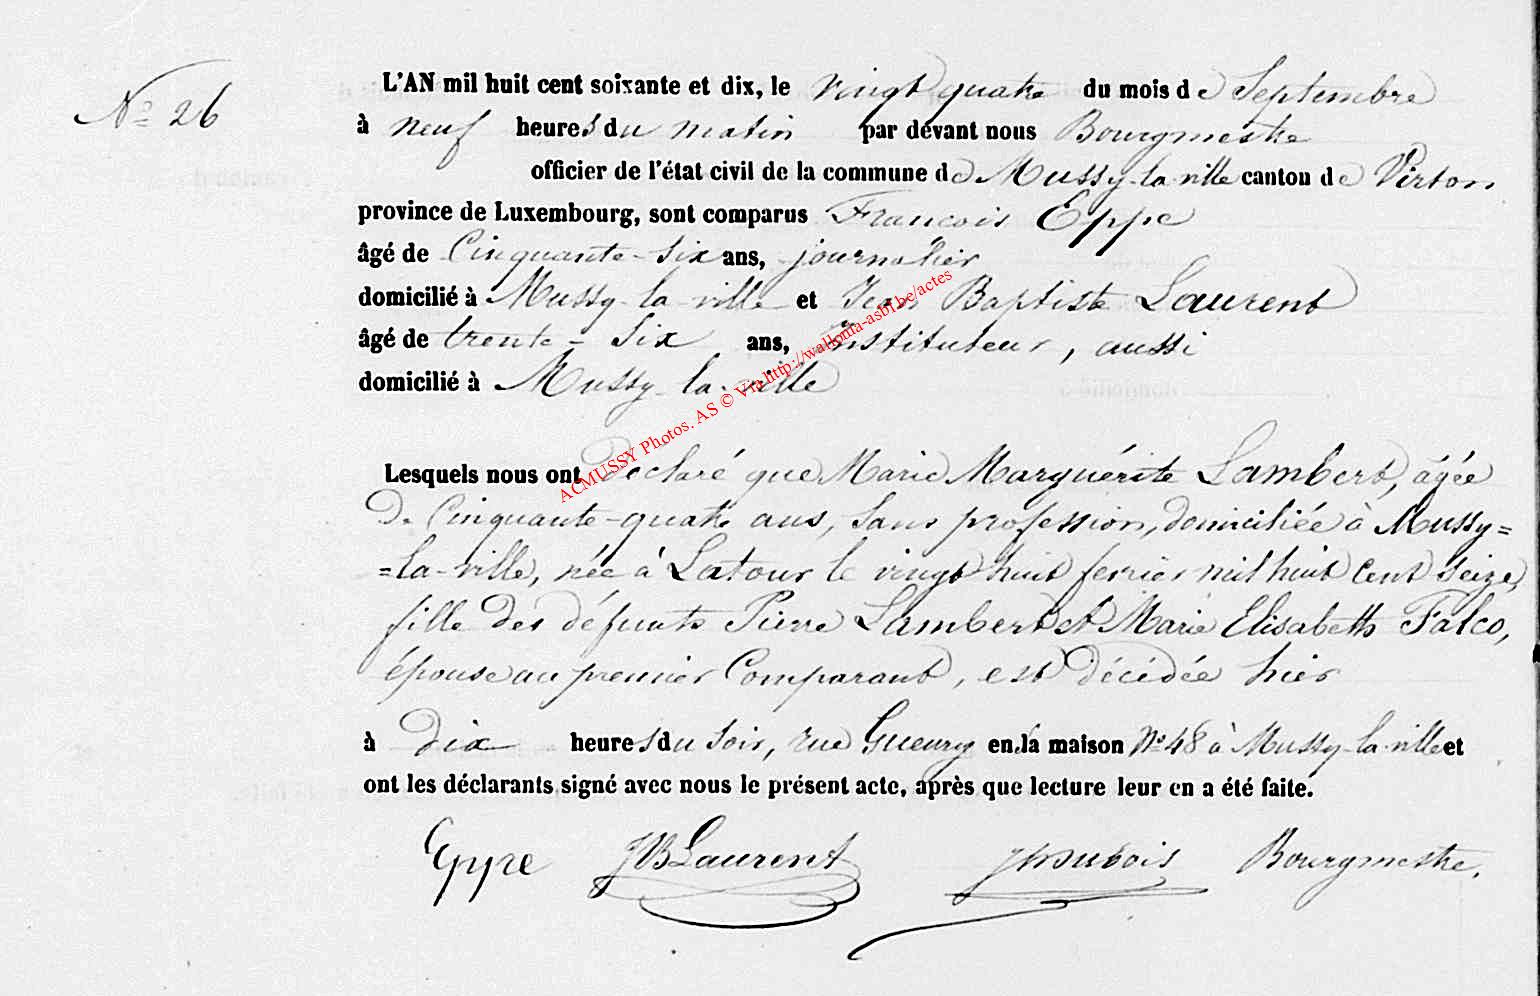 N° 26
L'AN mil huit cent soixante et dix, le vingt quatre du mois de Septembre
à neuf heures du matin par devant nous Bourgmestre
officier de l'état civil de la commune de Mussy-la-ville canton de Virton
province de Luxembourg, sont comparus François Eppe
âgé de Cinquante-six ans, journalier
domicilié à Mussy-la-ville et Jean Baptiste Laurent
âgé de trente-six ans, Instituteur, aussi
domicilié à Mussy-la-ville
ACMUSSY Photos. AS © Via http://wallonia-asbl.be/actes
Lesquels nous ont Déclaré que Marie Marguérite Lambert, âgée
De Cinquante-quatre ans, Sans profession, domiciliée à Mussy=
=la-ville, née à Latour le vingt huit fevrier mil huit cent seize,
fille des défunts Pierre Lambert et Marie Elisabeth Falco,
épouse au premier Comparant, est décédée hier
à Dix heures du soir, rue Gueury en la maison N° 48 à Mussy-la-ville et
ont les déclarants signé avec nous le présent acte, après que lecture leur en a été faite.
Eppe JB Laurent Dubois Bourgmestre.